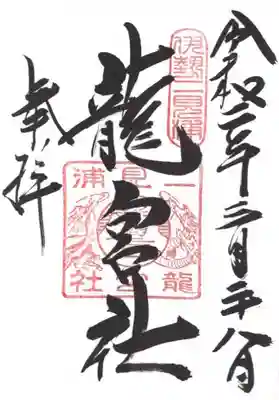 伊勢二見浦
令和二年三月二十八日
龍宮社
二見浦
龍宮社
奉拝